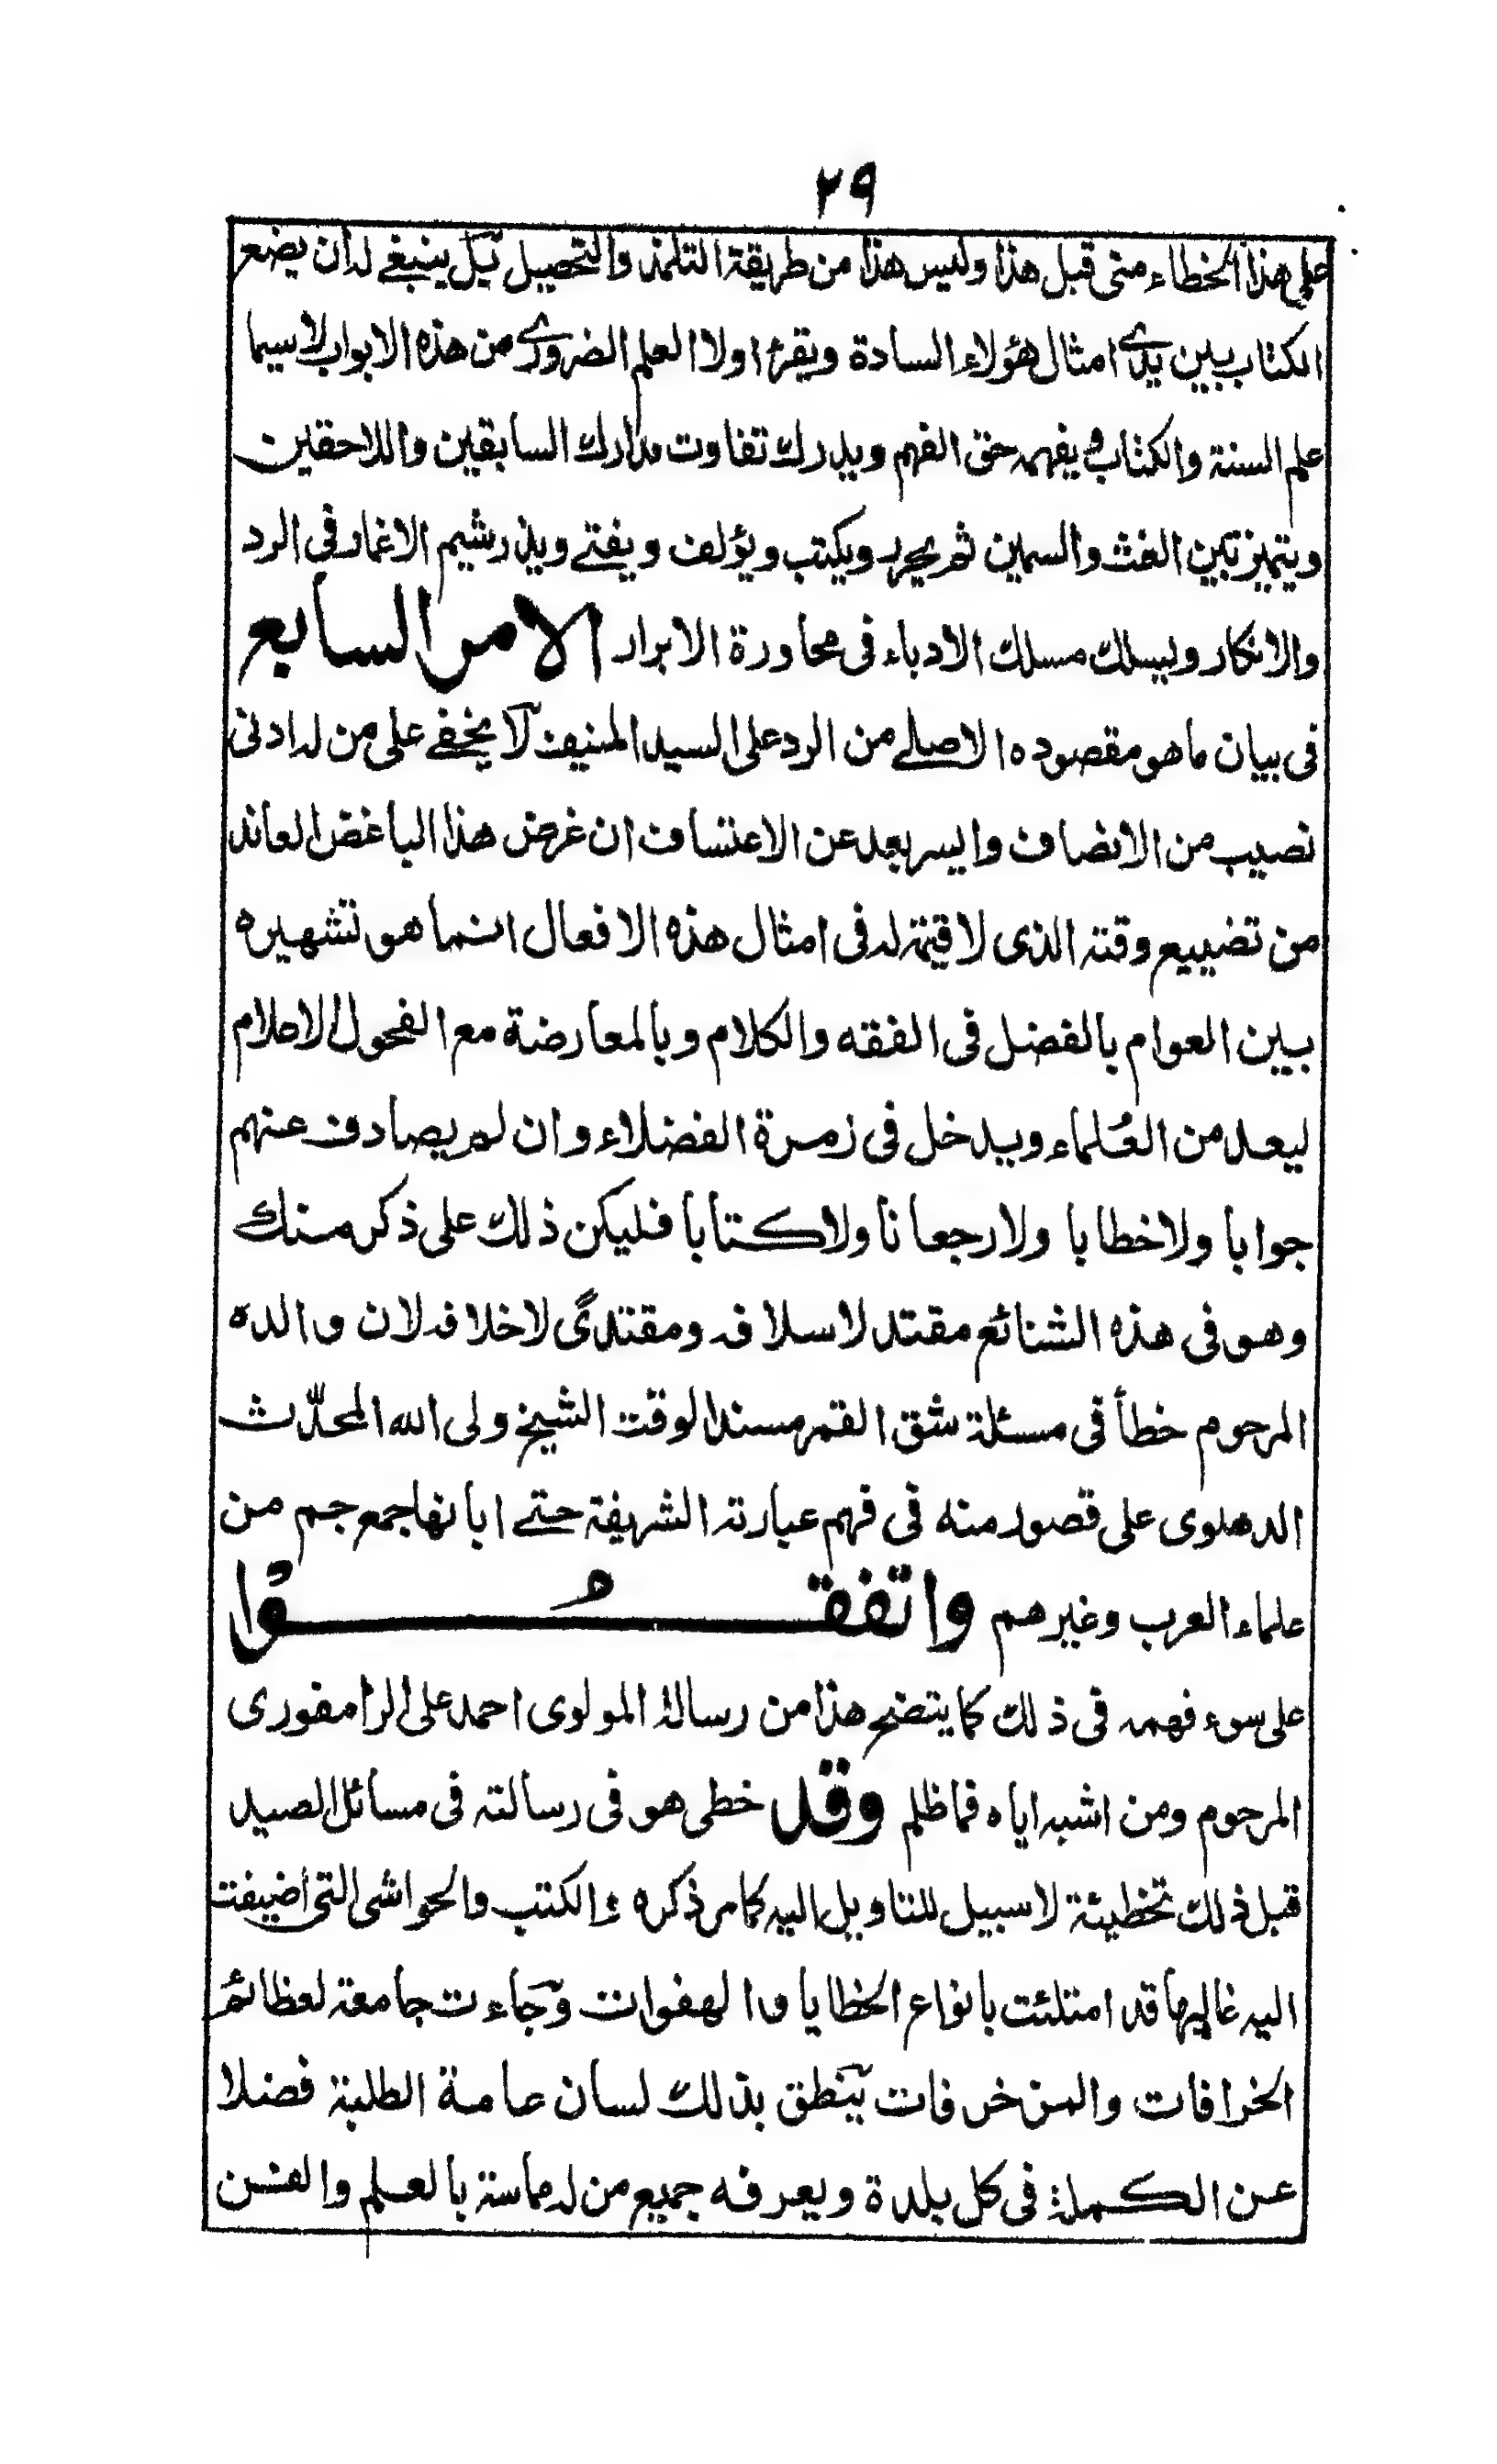 ٢٩
على هذا الخطاء منى قبل هذا وليس هذا من طريقة التلمذ والتحصيل بل ينبغے له ان يضع
الكتاب بين يدى امثال هؤلاء السادة ويقرء اولا العلم الضرورى من هذه الابواب لاسيما
علم السنة والكتاب ويفهمه حق الفهم ويدرك تفاوت مدارك السابقين واللاحقين
ويتميز بين الغث والسمين ثم يحرر ويكتب ويؤلف ويفتے ويذر شيم الاغمار فى الرد
والانكار ويسلك مسلك الادباء فى محاورة الابرار الامر السابع
فى بيان ما هو مقصوده الاصلے من الرد على السيد المنيف لا يخفے على من له ادنى
نصيب من الانصاف وايسر بعد عن الاعتساف ان غرض هذا الباغض العاند
من تضييع وقته الذى لا قيمة له فى امثال هذه الافعال انما هو تشهيره
بين العوام بالفضل فى الفقه والكلام وبالمعارضة مع الفحول الاعلام
ليعد من العلماء ويدخل فى زمرة الفضلاء وان لم يصادف عنهم
جوابا ولا خطابا ولا رجعانا ولا كتابا فليكن ذلك على ذكر منك
وهو فى هذه الشنائع مقتد لاسلافه ومقتدًى لاخلافه لان والده
المرحوم خطأ فى مسئلة شق القمر مسند الوقت الشيخ ولى الله المحدّث
الدهلوى على قصور منه فى فهم عبارته الشريفة حتے ابانها جمع جم من
علماء العرب وغيرهم واتفقُوْا
على سوء فهمه فى ذلك كما يتضح هذا من رسالة المولوى احمد على الرامفورى
المرحوم ومن اشبه اياه فما ظلم وقد خطى هو فى رسالته فى مسائل الصيد
قبل ذلك تخطيئة لا سبيل للتاويل اليه كما مر ذكره والكتب والحواشى التى اضيفت
اليه غالبها قد امتلئت بانواع الخطايا والهفوات وجاءت جامعة لعظائم
الخرافات والمزخرفات ينطق بذلك لسان عامة الطلبة فضلا
عن الكملة فى كل بلدة ويعرفه جميع من له مماسة بالعلم والفن